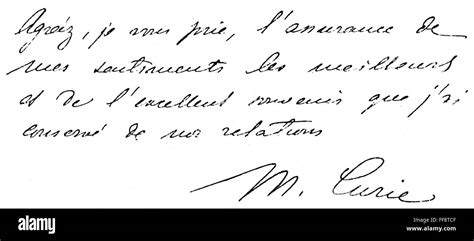 Agréez, je vous prie, l'assurance de
mes sentiments les meilleurs
et de l'excellent souvenir que j'ai
conservé de nos relations
M. Curie
alamy stock photo
Image ID: FF8TCF
www.alamy.com